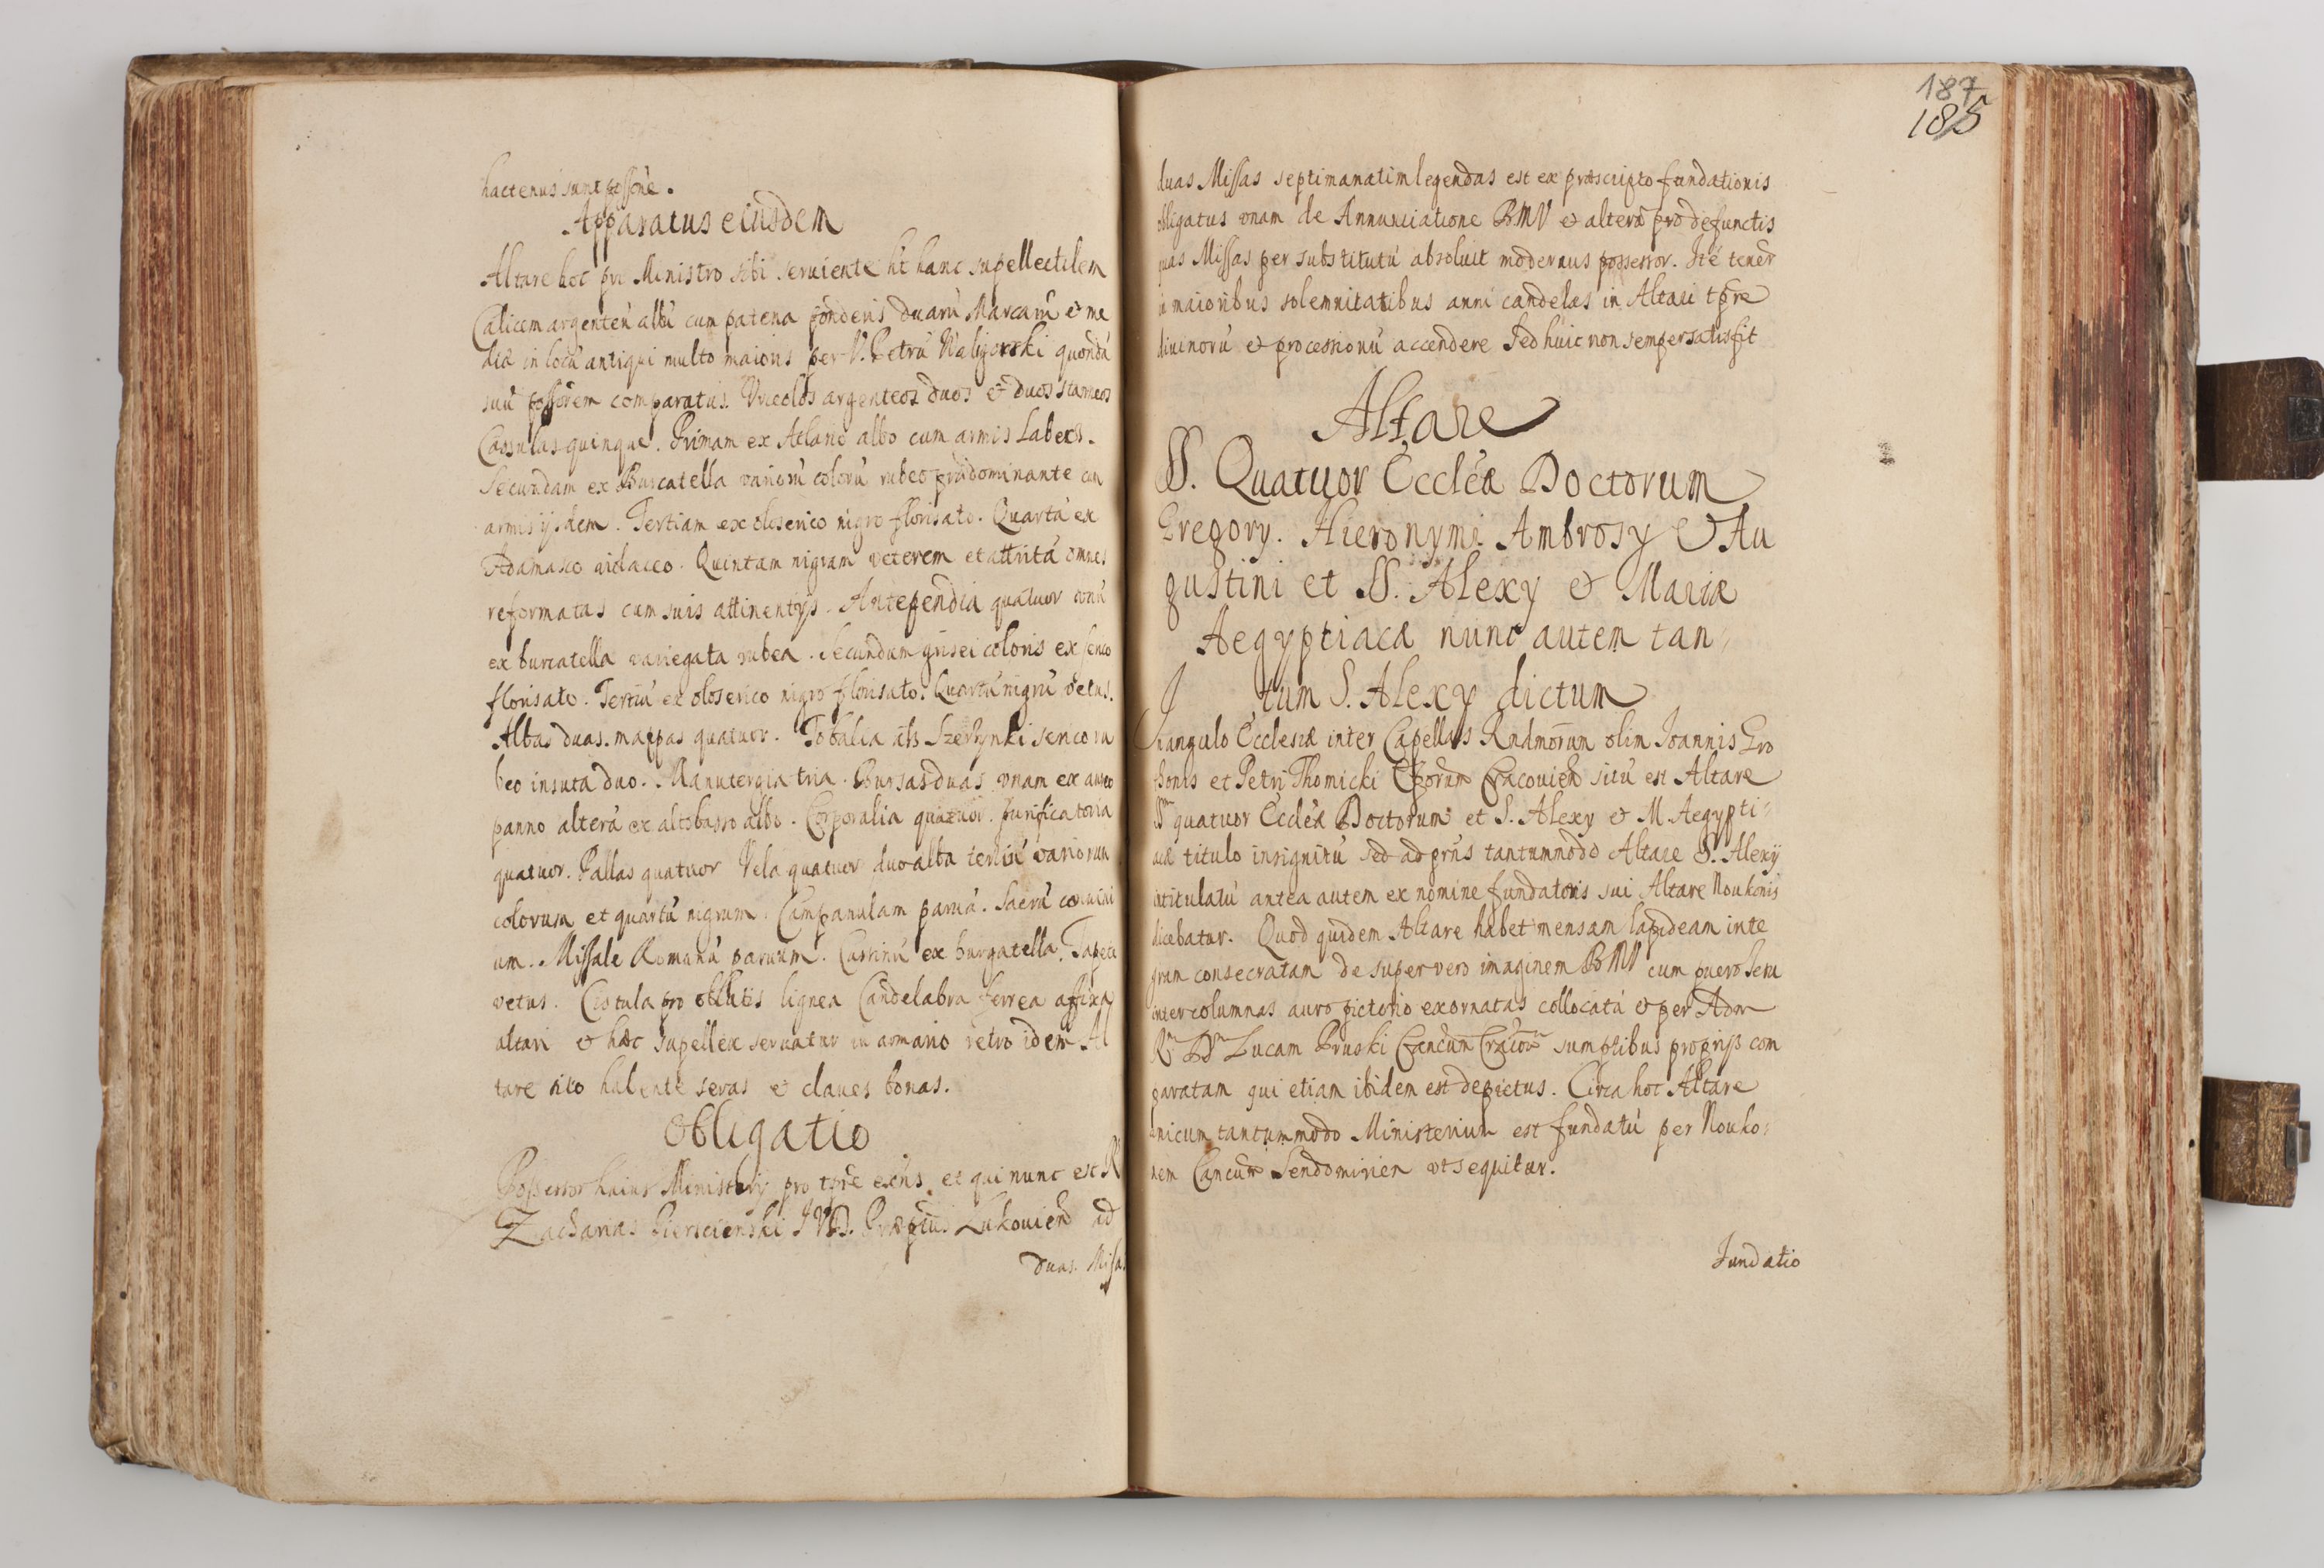 hactenus sunt possoñe.
Apparatus eiusdem
Altare hoc pro Ministro sibi seruiente ht hanc supellectilem
Calicem argenteũ albũ cum patena ponderis duarũ Marcarũ et me
dia in locũ antiqui multo maioris per V. Petrũ Waligorski quondã
suũ possõrem comparatus. Vrceolos argenteos duos et duos stanneos
Casulas quinque. Primam ex Atlante albo cum armis Labens.
Secundam ex Burcatella variorũ colorũ rubeo prædominante cum
armis ijsdem. Tertiam ex oloserico nigro florisato. Quartã ex
Adamasco violaceo. Quintam nigram veterem et attritã omnes
reformatas cum suis attinentijs. Antependia quatuor vnũ
ex burcatella variegata rubea. Secundum grisei coloris ex serico
florisato. Tertiũ ex oloserico nigro florisato. Quartũ nigrũ vetus.
Albas duas. mappas quatuor. Tobalia als Szerzynki serico ru
beo insuta duo. Manutergia tria. Bursas duas vnam ex aureo
panno alterã ex altobasso albo. Corporalia quatuor. purificatoria
quatuor. Pallas quatuor Vela quatuor duo alba tertiũ variorum
colorum et quartũ nigrum. Campanulam paruã. Sacrũ conuiui
um. Missale Romanũ paruum. Cussinũ ex burgatella. Tapete
vetus. Cistula pro oblatis lignea Candelabra ferrea affixa
altari et hæc supellex seruatur in armario retro idem Al
tare sito habente seras et claues bonas.
Obligatio
Possessor huius Ministerij pro tpre exñs et qui nunc est R
Zacharias Piericienski IVD. Præptus Lukouien ad
duas Missas
187
185
duas Missas septimanatim legendas est ex præscripto fundationis
obligatus vnam de Annunciatione BMV et alterã pro defunctis
quas Missas per substitutũ absoluit modernus possessor. Itẽ tener
in maioribus solemnitatibus anni candelas in Altari tpre
diuinorũ et processionũ accendere sed huic non semper satisfit
Altare
SS. Quatuor Eccleæ Doctorum
Gregory. Hieronymi Ambrosy et Au
gustini et SS. Alexy et Mariæ
Aegyptiacæ nunc autem tan=
tum S. Alexy dictum
In angulo Ecclesiæ inter Capellas Rndmorum olim Ioannis Gro
thonis et Petri Thomicki Eporum Cracouien sitũ est Altare
SS quatuor Eccleæ Doctorum et S. Alexy et M. Aegypti=
acæ titulo insignitũ sed ad præns tantummodo Altare S. Alexij
intitulatũ antea autem ex nomine fundatoris sui Altare Noukonis
dicebatur. Quod quidem Altare habet mensam lapideam inte
gram consecratam de super vero imaginem BMV cum puero Iesu
inter columnas auro pictorio exornatas collocatã et per Adm
R. D. Lucam Pruski Cancum Cracou sumptibus proprijs com
paratam qui etiam ibidem est depictus. Circa hoc Altare
vnicum tantummodo Ministerium est fundatũ per Nouko=
nem Cancum Sendomirien vt sequitur.
Fundatio